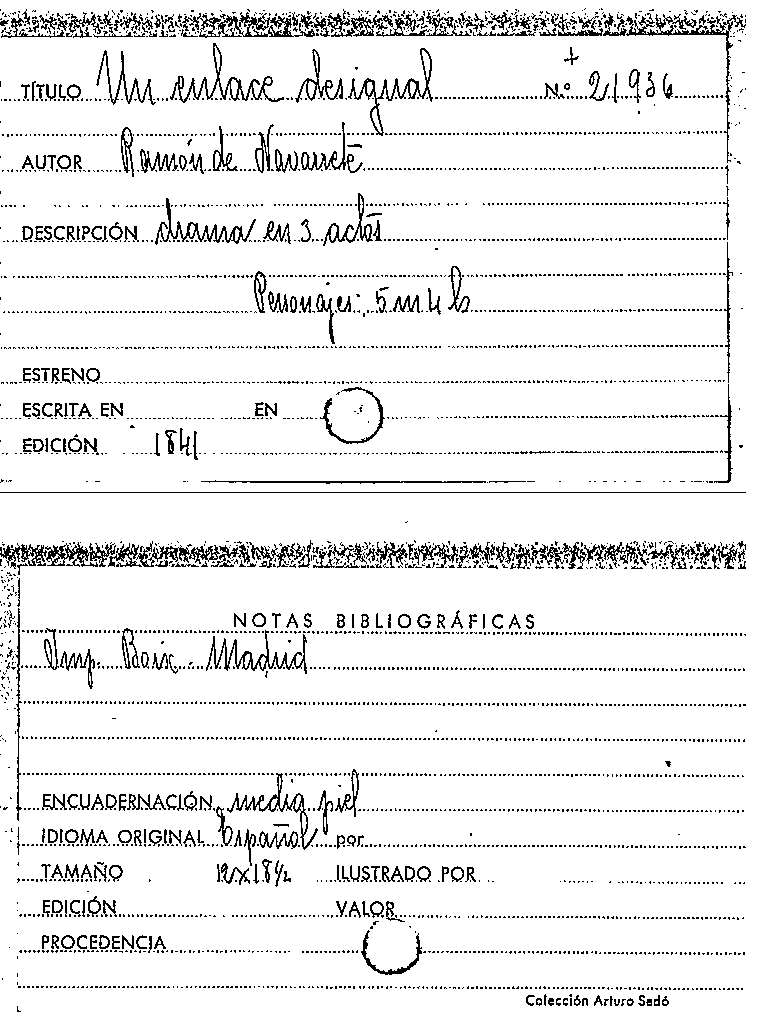 TÍTULO Un enlace desigual N.º 21936
+
AUTOR Ramón de Navarrete
DESCRIPCIÓN drama en 3 actos
Personajes: 5 m 4 h
ESTRENO
ESCRITA EN EN
EDICIÓN 1841
NOTAS BIBLIOGRÁFICAS
Imp. Boix. Madrid
ENCUADERNACIÓN media piel
IDIOMA ORIGINAL Español por
TAMAÑO 12x18½ ILUSTRADO POR
EDICIÓN VALOR
PROCEDENCIA
Colección Arturo Sedó